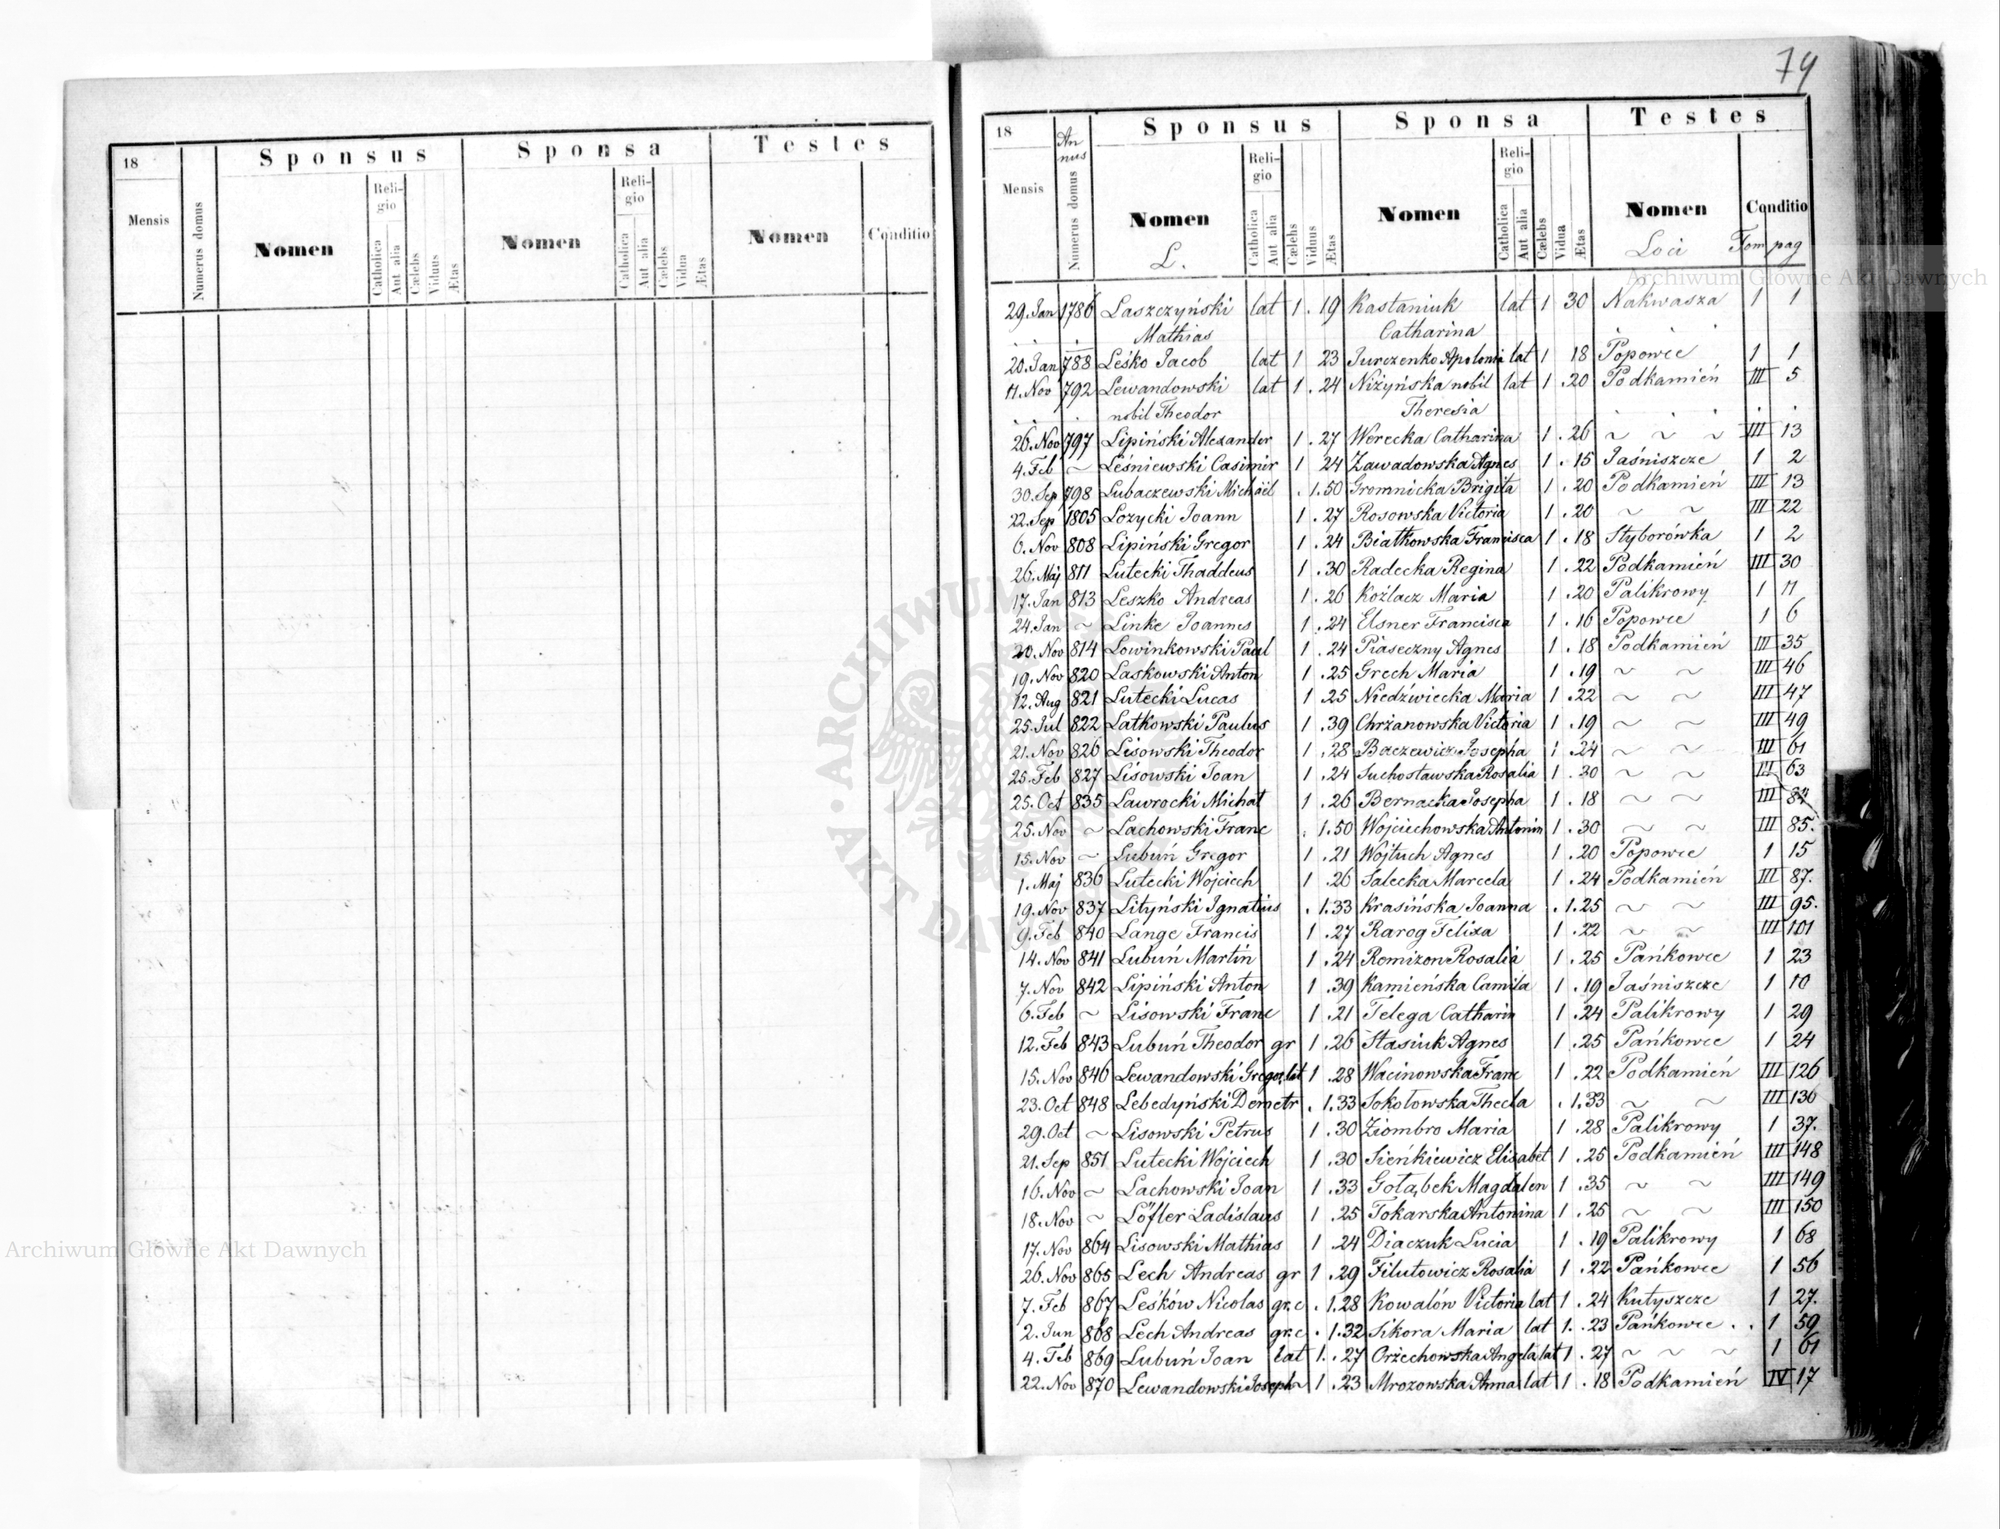 18
Mensis
Numerus domus
Sponsus
Nomen
Religio
Catholica
Aut alia
Cælebs
Viduus
Ætas
Sponsa
Nomen
Religio
Catholica
Aut alia
Cælebs
Vidua
Ætas
Testes
Nomen
Conditio
74
18
Mensis
Annus
Numerus domus
Sponsus
Nomen
L.
Religio
Catholica
Aut alia
Cælebs
Viduus
Ætas
Sponsa
Nomen
Religio
Catholica
Aut alia
Cælebs
Vidua
Ætas
Testes
Nomen
Loci
Conditio
Tom pag
29. Jan 1786 Laszczyński lat 1 . 19 Kastaniuk lat 1 30 Nakwasza 1 1
. . . Mathias Catharina . . .
20. Jan 788 Leśko Jacob lat 1 23 Jurczenko Apolonia lat 1 18 Popowce 1 1
11. Nov 792 Lewandowski lat 1 . 24 Niżyńska nobil lat 1 . 20 Podkamień III 5
. . . nobil Theodor Theresia . . . . .
26. Nov 797 Lipiński Alexander 1 . 27 Werecka Catharina 1 . 26 ~ ~ ~ III 13
4. Feb ~ Leśniewski Casimir 1 24 Zawadowska Agnes 1 . 15 Jaśniszcze 1 2
30. Sep 798 Lubaczewski Michaël . 1. 50 Gromnicka Brigita 1 . 20 Podkamień III 13
22. Sep 1805 Lozycki Joann 1 . 27 Rosowska Victoria 1 . 20 ~ ~ III 22
6. Nov 808 Lipiński Gregor 1 . 24 Białkowska Francisca 1 . 18 Styborówka 1 2
26. Maj 811 Lutecki Thaddeus 1 . 30 Radecka Regina 1 . 22 Podkamień III 30
17. Jan 813 Leszko Andreas 1 . 26 Koźlacz Maria 1 . 20 Palikrowy 1 11
24. Jan ~ Linke Joannes 1 . 24 Elsner Francisca 1 . 16 Popowce 1 6
20. Nov 814 Lowinkowski Paul 1 . 24 Piaseczny Agnes 1 . 18 Podkamień III 35
19. Nov 820 Laskowski Anton 1 . 25 Grech Maria 1 . 19 ~ ~ III 46
12. Aug 821 Lutecki Lucas 1 . 25 Niedźwiecka Maria 1 . 22 ~ ~ III 47
25. Jul 822 Latkowski Paulus 1 . 39 Chrżanowska Victoria 1 . 19 ~ ~ III 49
21. Nov 826 Lisowski Theodor 1 . 28 Baczewicz Josepha 1 . 24 ~ ~ III 61
25. Feb 827 Lisowski Joan 1 . 24 Suchosławska Rosalia 1 . 30 ~ ~ III 63
25. Oct 835 Lawrocki Michał 1 . 26 Bernacka Josepha 1 . 18 ~ ~ III 84
25. Nov ~ Lachowski Franc . 1. 50 Wojciechowska Antonin 1 . 30 ~ ~ III 85.
15. Nov ~ Lubuń Gregor 1 . 21 Wojtuch Agnes 1 . 20 Popowce 1 15
1. Maj 836 Lutecki Wojciech 1 . 26 Salecka Marcela 1 . 24 Podkamień III 87.
19. Nov 837 Lityński Ignatius . 1. 33 Krasińska Joanna . 1. 25 ~ ~ III 95.
9. Feb 840 Lange Francis 1 . 27 Rarog Felixa 1 . 22 ~ ~ III 101
14. Nov 841 Lubuń Martin 1 . 24 Remizon Rosalia 1 . 25 Pańkowce 1 23
7. Nov 842 Lipiński Anton 1 . 39 Kamieńska Camila 1 . 19 Jaśniszcze 1 10
6. Feb ~ Lisowski Franc 1 . 21 Telega Catharin 1 . 24 Palikrowy 1 29
12. Feb 843 Lubuń Theodor gr 1 . 26 Stasiuk Agnes 1 . 25 Pańkowce 1 24
15. Nov 846 Lewandowski Gregor lat 1 . 28 Wacinowska Franc 1 . 22 Podkamień III 126
23. Oct 848 Lebedyński Demetr . 1. 33 Sokołowska Thecla . 1. 33 ~ ~ III 130
29. Oct ~ Lisowski Petrus 1 . 30 Ziombro Maria 1 . 28 Palikrowy 1 37.
21. Sep 851 Lutecki Wojciech 1 . 30 Sieńkiewicz Elisabet 1 . 25 Podkamień III 148
16. Nov ~ Lachowski Joan 1 . 33 Gołąbek Magdalen 1 . 35 ~ ~ III 149
18. Nov ~ Löfler Ladislaus 1 . 25 Tokarska Antonina 1 . 25 ~ ~ III 150
17. Nov 864 Lisowski Mathias 1 . 24 Diaczuk Lucia 1 . 19 Palikrowy 1 68
26. Nov 865 Lech Andreas gr 1 . 29 Filutowicz Rosalia 1 . 22 Pańkowce 1 56
7. Feb 867 Leśków Nicolas gr.c . 1. 28 Kowalów Victoria lat 1 . 24 Kutyszcze 1 27.
2. Jun 868 Lech Andreas gr.c . 1. 32 Sikora Maria lat 1. . 23 Pańkowce . . 1 59
4. Feb 869 Lubuń Joan lat 1. . 27 Orżechowska Angela lat 1 . 27 ~ ~ ~ 1 61
22. Nov 870 Lewandowski Joseph ~ 1 . 23 Mrozowska Anna lat 1 . 18 Podkamień IV 17
Archiwum Główne Akt Dawnych
Archiwum Główne Akt Dawnych
ARCHIWUM
AKT DAW